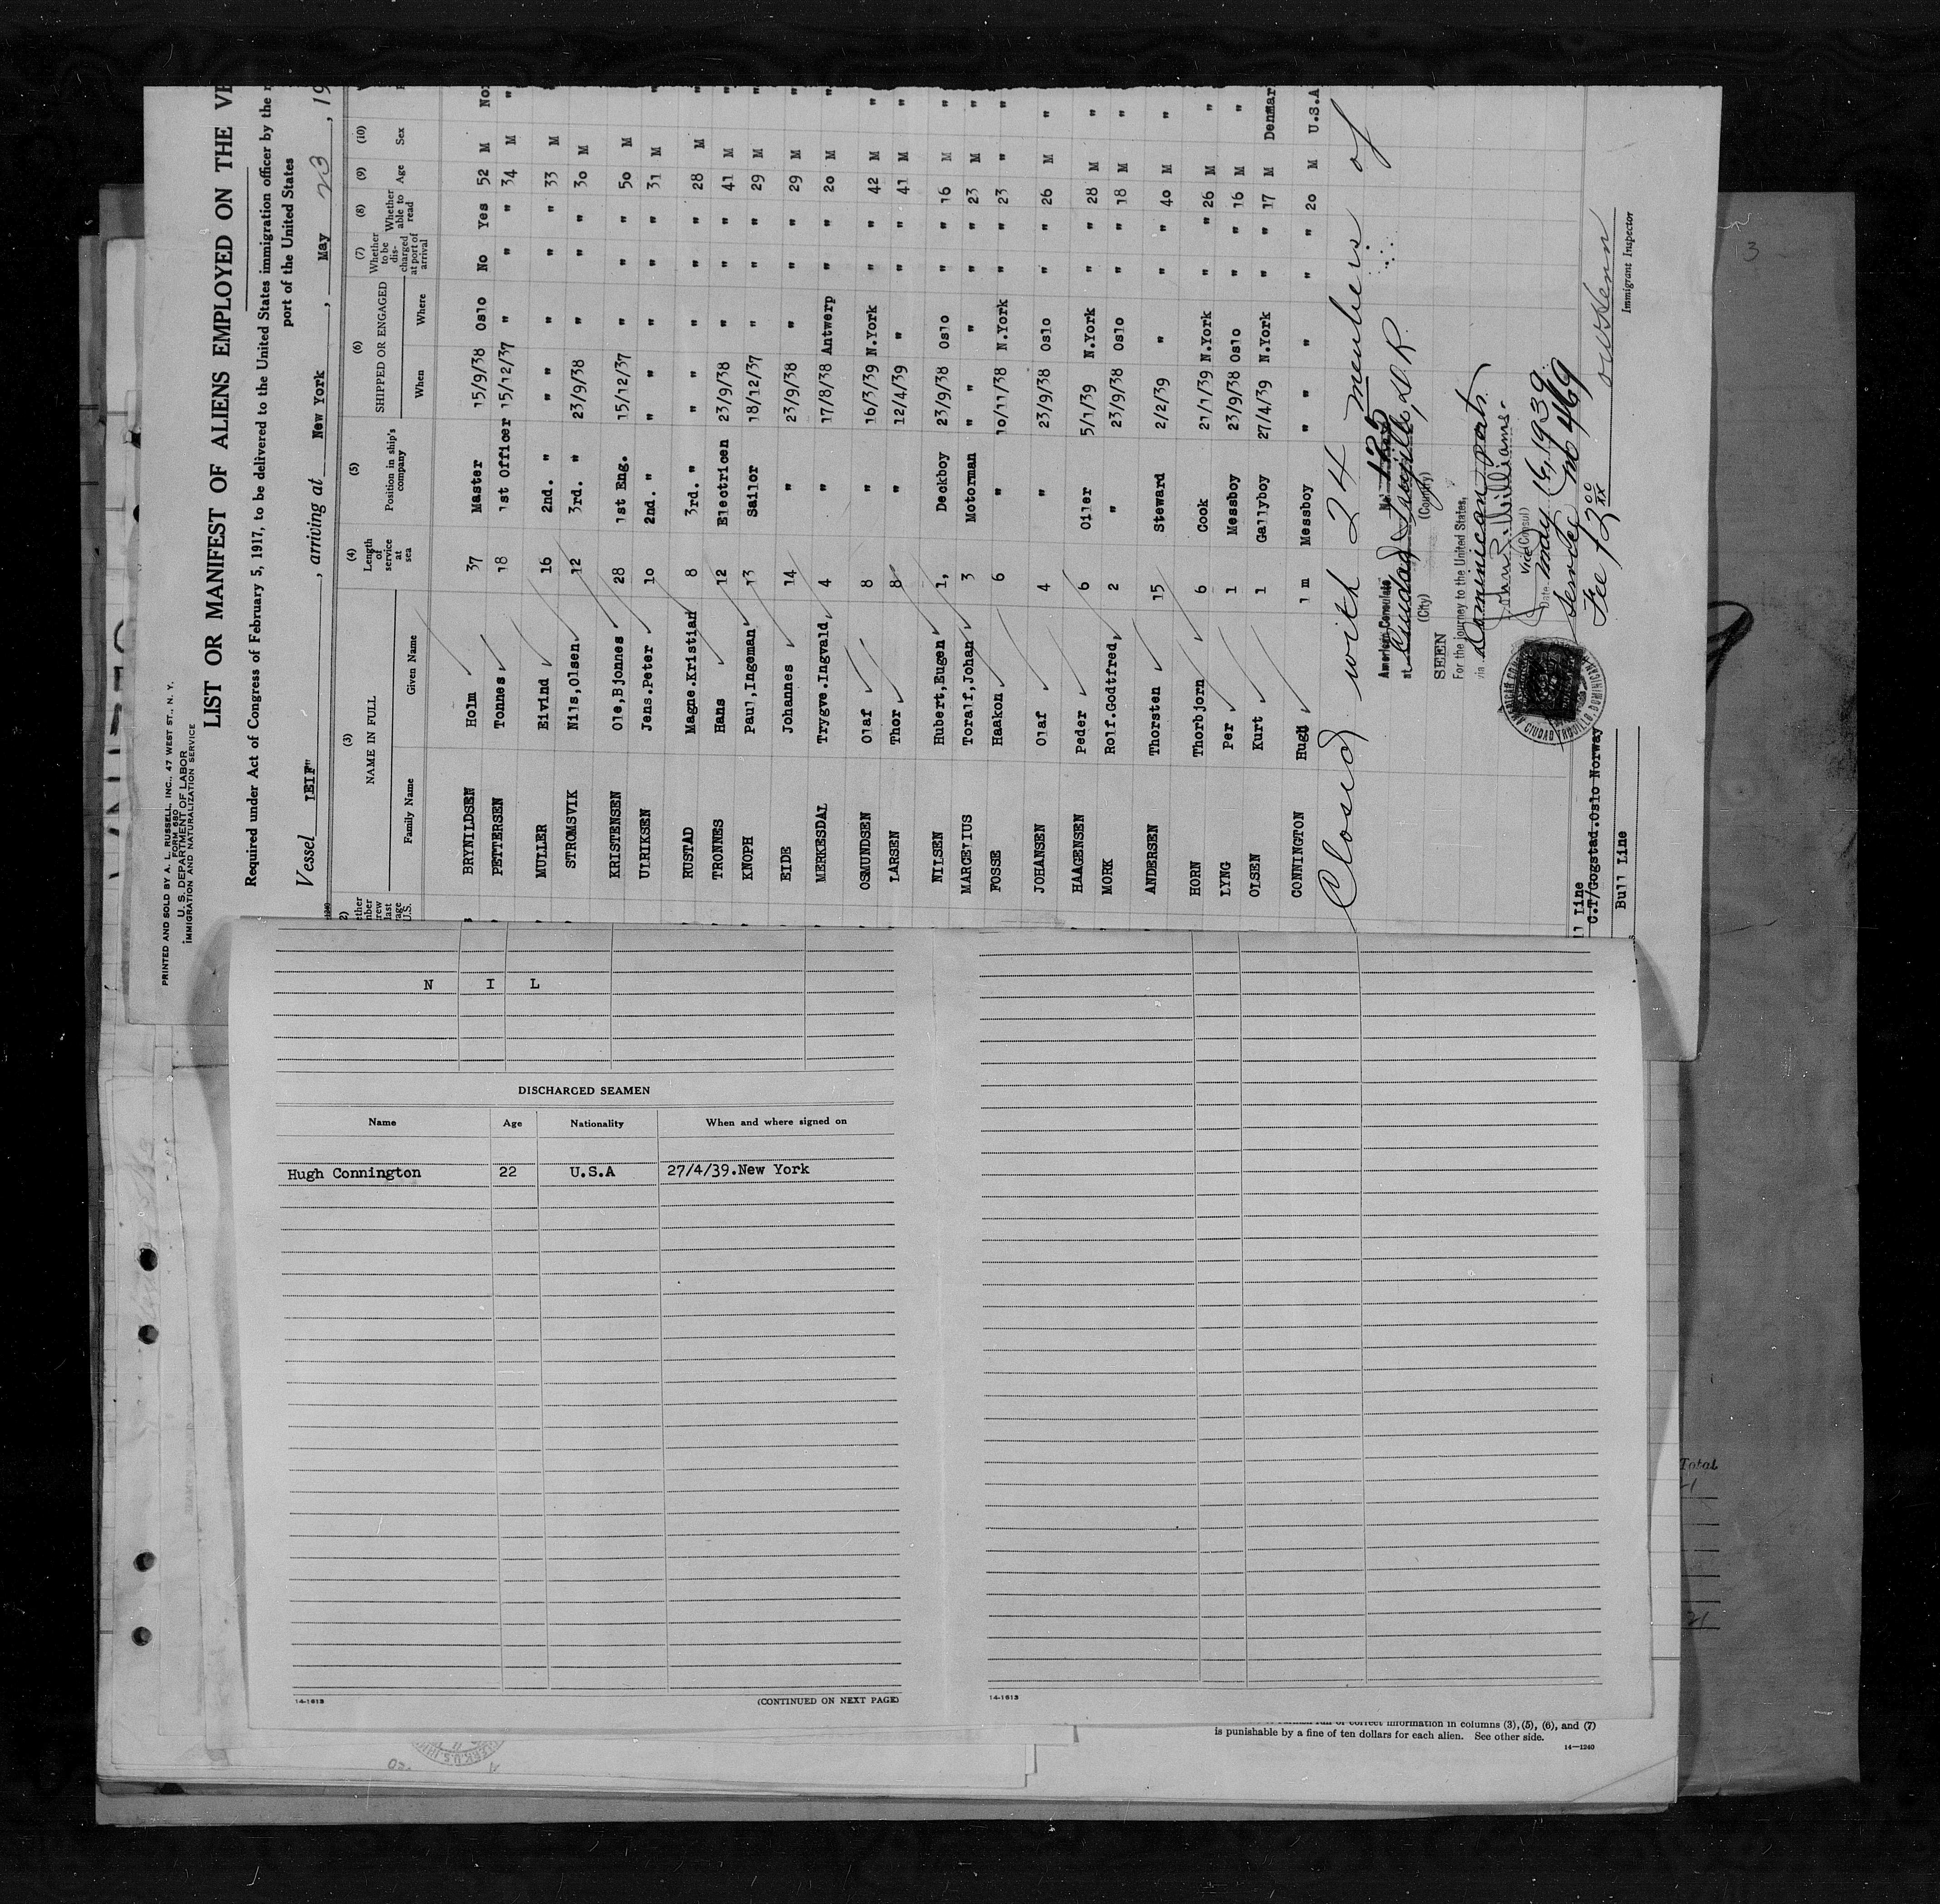 PRINTED AND SOLD BY A. L. RUSSELL, INC., 47 WEST ST., N. Y.
FORM 680
U. S. DEPARTMENT OF LABOR
IMMIGRATION AND NATURALIZATION SERVICE
LIST OR MANIFEST OF ALIENS EMPLOYED ON THE
Required under Act of Congress of February 5, 1917, to be delivered to the United States immigration officer by the
port of the United States
Vessel "LEIF" , arriving at New York , May 23 , 19
(3) (4) (5) (6) (7) (8) (9) (10)
NAME IN FULL Length of service at sea Position in ship's company SHIPPED OR ENGAGED Whether to be discharged at port of arrival Whether able to read Age Sex
Family Name Given Name When Where
BRYNILDSEN Holm 37 Master 15/9/38 Oslo No Yes 52 M
PETTERSEN Tonnes 18 1st Officer 15/12/37 " " " 34 M "
MULLER Eivind 16 2nd. " " " " " " 33 M "
STROMSVIK Nils,Olsen 12 3rd. " 23/9/38 " " " 30 M
KRISTENSEN Ole,Bjonnes 28 1st Eng. 15/12/37 " " " 50 M
ULRIKSEN Jens.Peter 10 2nd. " " " " " 31 M "
RUSTAD Magne.Kristian 8 3rd. " " " " " " 28 M
TRONNES Hans 12 Electricen 23/9/38 " " " 41 M "
KNOPH Paul,Ingeman 13 Sailor 18/12/37 " " " 29 M "
EIDE Johannes 14 " 23/9/38 " " " 29 M "
MERKESDAL Trygve.Ingvald 4 " 17/8/38 Antwerp " " 20 M "
OSMUNDSEN Olaf 8 " 16/3/39 N.York " " 42 M "
LARSEN Thor 8 " 12/4/39 " " " 41 M "
NILSEN Hubert,Eugen 1, Deckboy 23/9/38 Oslo " " 16 M "
MARCELIUS Toralf,Johan 3 Motorman " " " " " 23 M "
FOSSE Haakon 6 " 10/11/38 N.York " " 23 " "
JOHANSEN Olaf 4 " 23/9/38 Oslo " " 26 M "
HAAGENSEN Peder 6 Oiler 5/1/39 N.York " " 28 M "
MORK Rolf.Godtfred, 2 " 23/9/38 Oslo " " 18 M "
ANDERSEN Thorsten 15 Steward 2/2/39 " " " 40 M "
HORN Thorbjorn 6 Cook 21/1/39 N.York " " 26 M "
LYNG Per 1 Messboy 23/9/38 Oslo " " 16 M "
OLSEN Kurt 1 Gallyboy 27/4/39 N.York " " 17 M Denmar
CONNINGTON Hugh 1 m Messboy " " " " " 20 M U.S.A
Closed with 24 members of
American Consulate No. 125
at Ciudad Trujillo, D.R.
(City) (Country)
SEEN
For the journey to the United States,
via Dominican ports.
Williams.
Vice Consul
Date May 16, 1939
Service no 469
Fee $2.00
Immigrant Inspector
C.T/Gogstad.Oslo Norway
Bull Line
N I L
DISCHARGED SEAMEN
Name Age Nationality When and where signed on
Hugh Connington 22 U.S.A 27/4/39.New York
14-1613 (CONTINUED ON NEXT PAGE)
14-1613
correct information in columns (3), (5), (6), and (7)
is punishable by a fine of ten dollars for each alien. See other side.
14—1240
Total
21
3